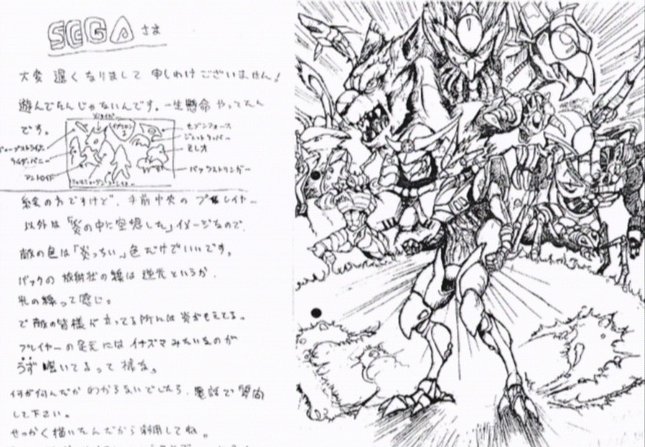 SEGA さま
大変 遅くなりまして 申しわけございません!
遊んでたんじゃないんです。一生懸命 やってたん
です。
セブンフォース
ジェットトリッパー
シルオ
バックストリンガー
絵の方ですけど、手前中央の プレイヤー
以外は「炎の中に空想した」イメージなので、
敵の色は「炎っちい」色だけでいいです。
バックの 放射状の線は 逆光というか、
光の線って感じ。
で 敵の皆様が立ってる所には 炎がもえてる。
プレイヤーの足元には イナズマみたいなのが
うず巻いてるって 感じ。
何が何んだか わからないでしたら、電話で 質問
して下さい。
せっかく描いたんだから 利用してね。